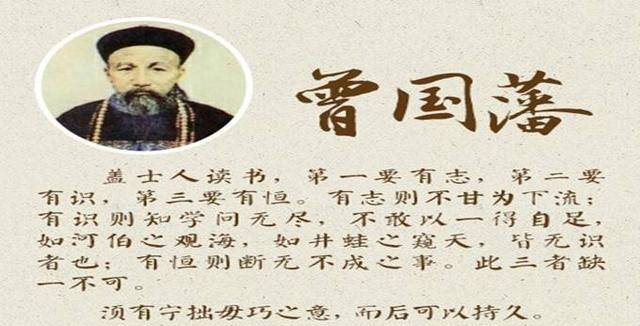 曾国藩
盖士人读书，第一要有志，第二要
有识，第三要有恒。有志则不甘为下流；
有识则知学问无尽，不敢以一得自足，
如河伯之观海，如井蛙之窥天，皆无识
者也；有恒则断无不成之事。此三者缺
一不可。
须有宁拙毋巧之意，而后可以持久。